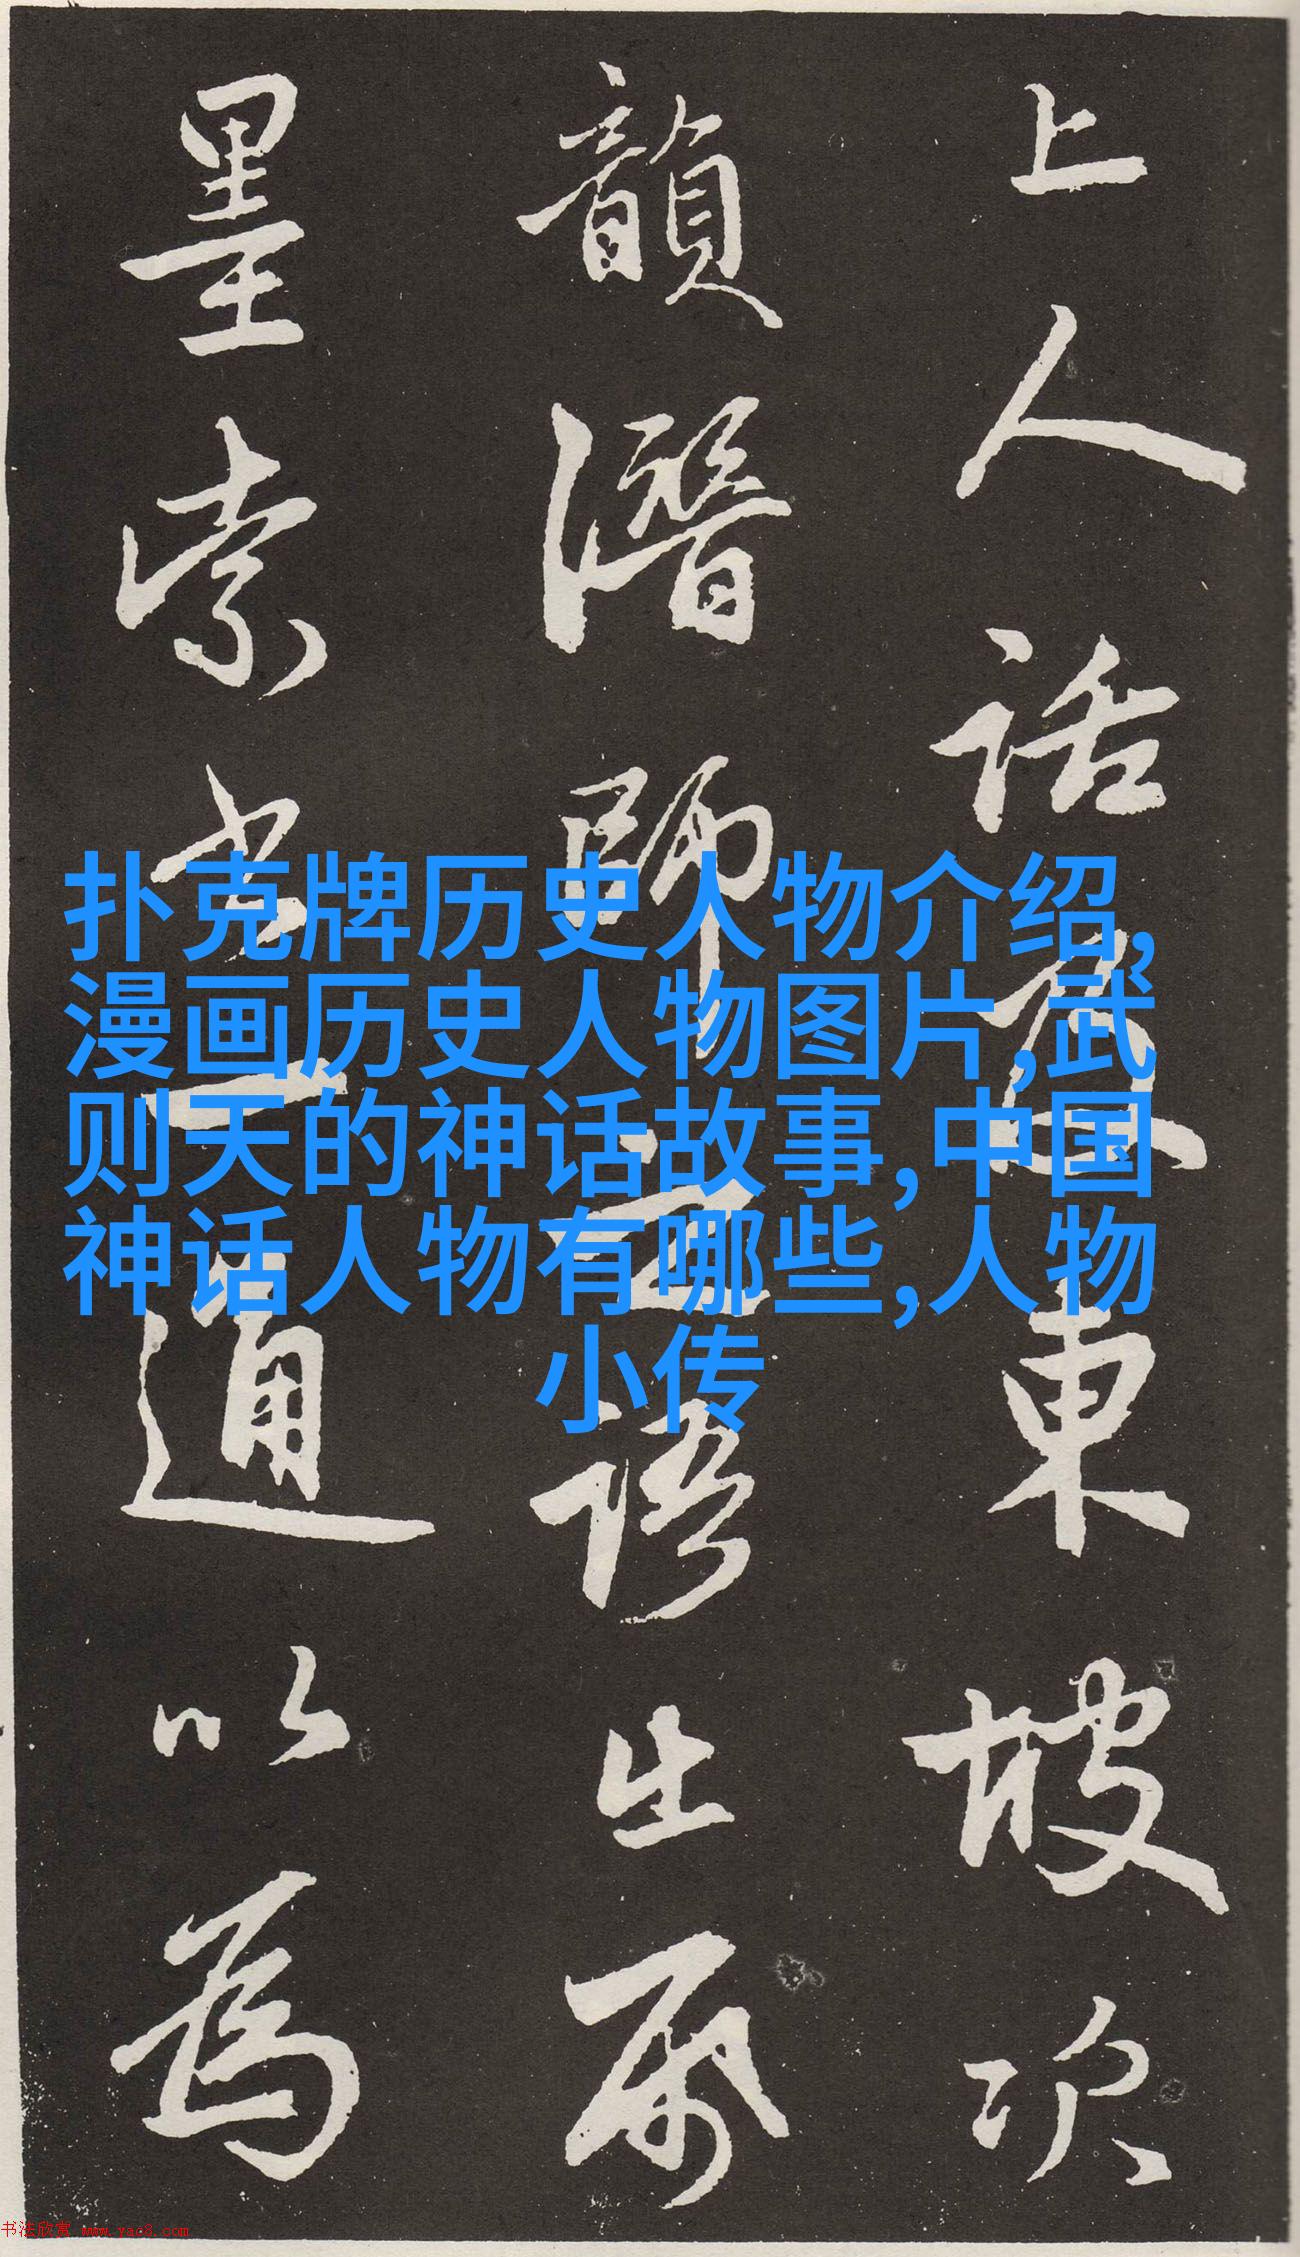 上人話及東坡次
韻潛師語
墨索書一通以為
扑克牌历史人物介绍,
漫画历史人物图片,武
则天的神话故事,中国
神话人物有哪些,人物
小传
书法欣赏 www.yac8.com